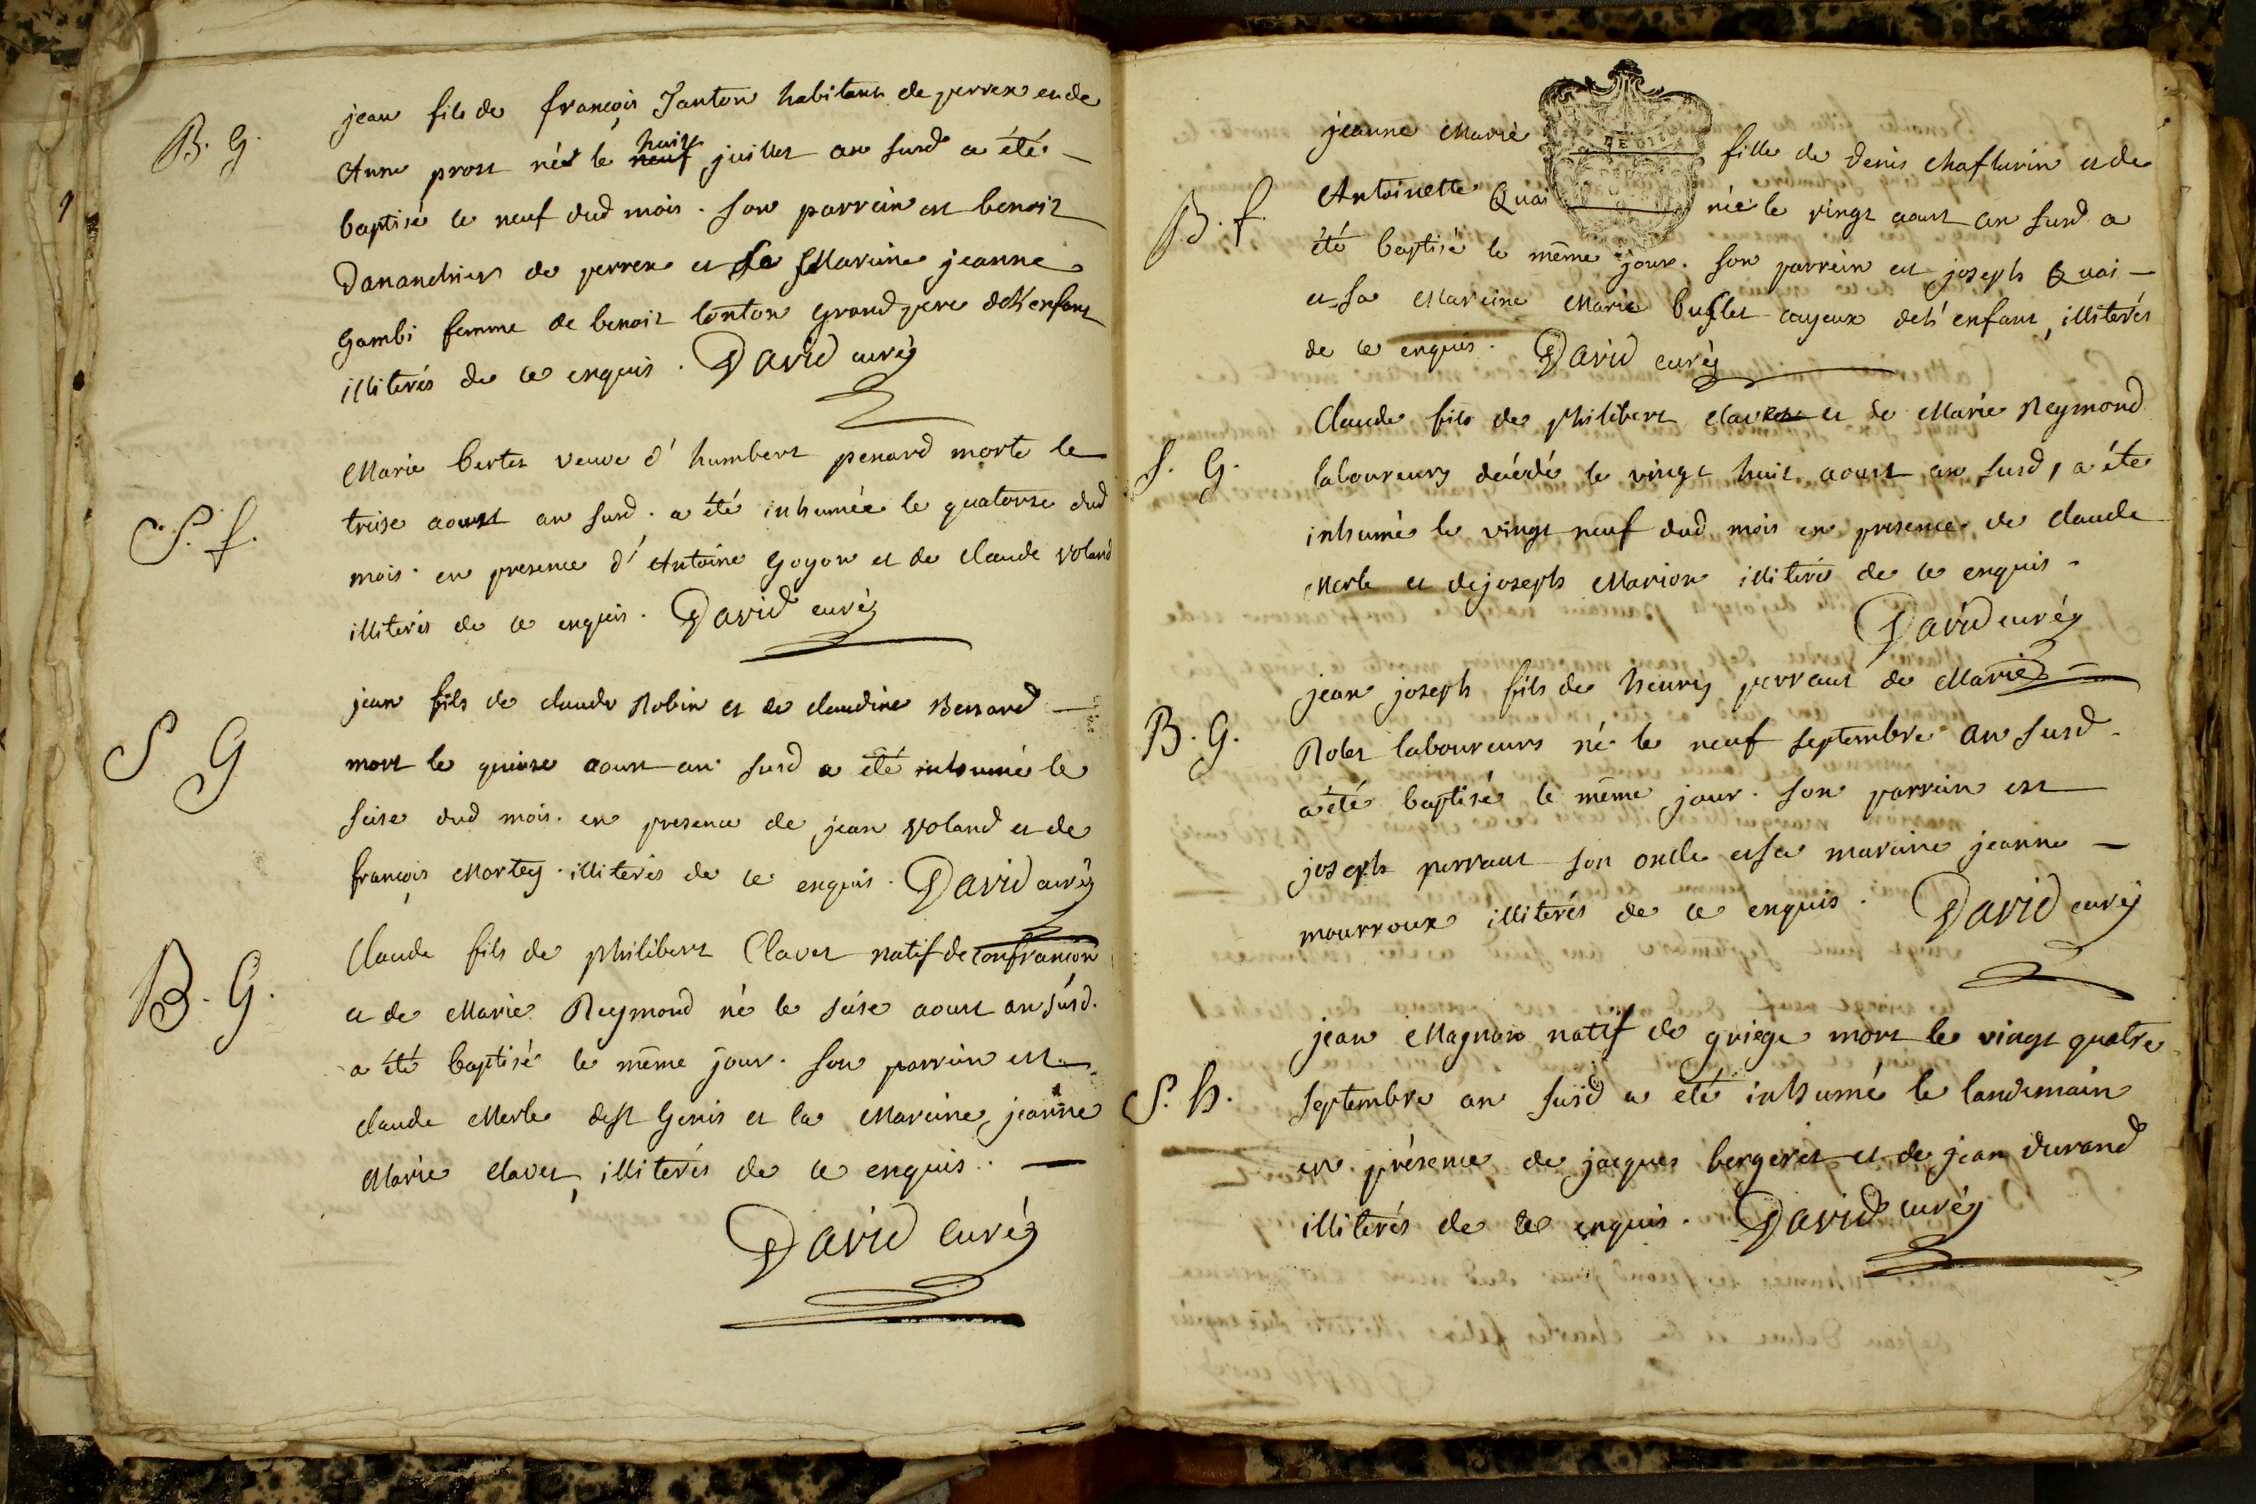 B. G.
jean fils de françois Janton habitans de perrex et de
Anne prost né le huit juillet an susd a été
baptisé le neuf dud mois. son parrain est benoit
Danandrier de perrex et sa Maraine jeanne
Gambi femme de benoit tonton grand pere de l'enfant
illiterés de ce enquis. David curé
S. f.
Marie berter veuve d'humbert penard morte le
treise aoust an susd. a été inhumée le quatorse dud
mois. en presence d'Antoine Goyon et de claude voland
illiterés de ce enquis. David curé
S G
jean fils de claude Robin et de claudine Bernard
mort le quinse aoust an susd a été inhumé le
seise dud mois. en presence de jean voland et de
françois Mortey. illiterés de ce enquis. David curé
B. G.
Claude fils de philibert Claver natif de Confrançon
et de Marie Reymond né le seise aoust an susd.
a été baptisé le même jour. son parrain est
claude Merle de st Genis et la Maraine jeanne
Marie claver, illiterés de ce enquis.
David curé
B. f.
jeanne Marie fille de Denis chaflurin et de
Antoinette Quai née le vingt aoust an susd a
été baptisé le même jour. son parrein est joseph Quai
et sa Mareine Marie buflet ayeux de l'enfant, illiterés
de ce enquis. David curé
S. G.
Claude fils de philibert claver et de Marie Reymond
laboureurs décédé le vingt huit aoust an susd, a été
inhumé le vingt neuf dud mois en presence de claude
Merle et de joseph Marion illiterés de ce enquis.
David curé
B. G.
jean joseph fils de henry perraut de Marie
Robet laboureurs né le neuf septembre an susd.
a été baptisé le même jour. son parrain est
joseph perraut son oncle et sa maraine jeanne
mourroux illiterés de ce enquis. David curé
S. h.
jean Magnon natif de griege mort le vingt quatre
septembre an susd a été inhumé le landemain
en présence de jacques bergeret et de jean durand
illiterés de ce enquis. David curé